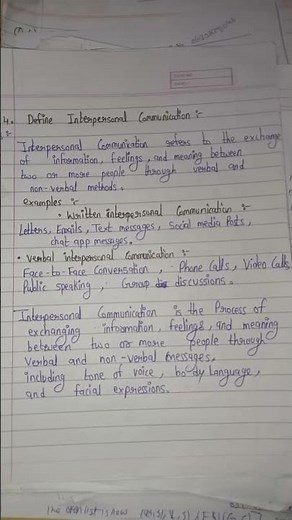 4. Define Interpersonal Communication :-
Interpersonal Communication refers to the exchange
of information, feelings, and meaning between
two or more people through verbal and
non-verbal methods.
examples :-
• Written interpersonal Communication :-
Letters, Emails, Text messages, Social media Posts,
chat app messages.
• Verbal interpersonal Communication :-
Face-to-Face Conversation, Phone Calls, Video Calls
Public speaking, Group discussions.
Interpersonal Communication is the Process of
exchanging information, feelings, and meaning
between two or more people through
Verbal and non-verbal messages.
including tone of voice, body language,
and facial expressions.